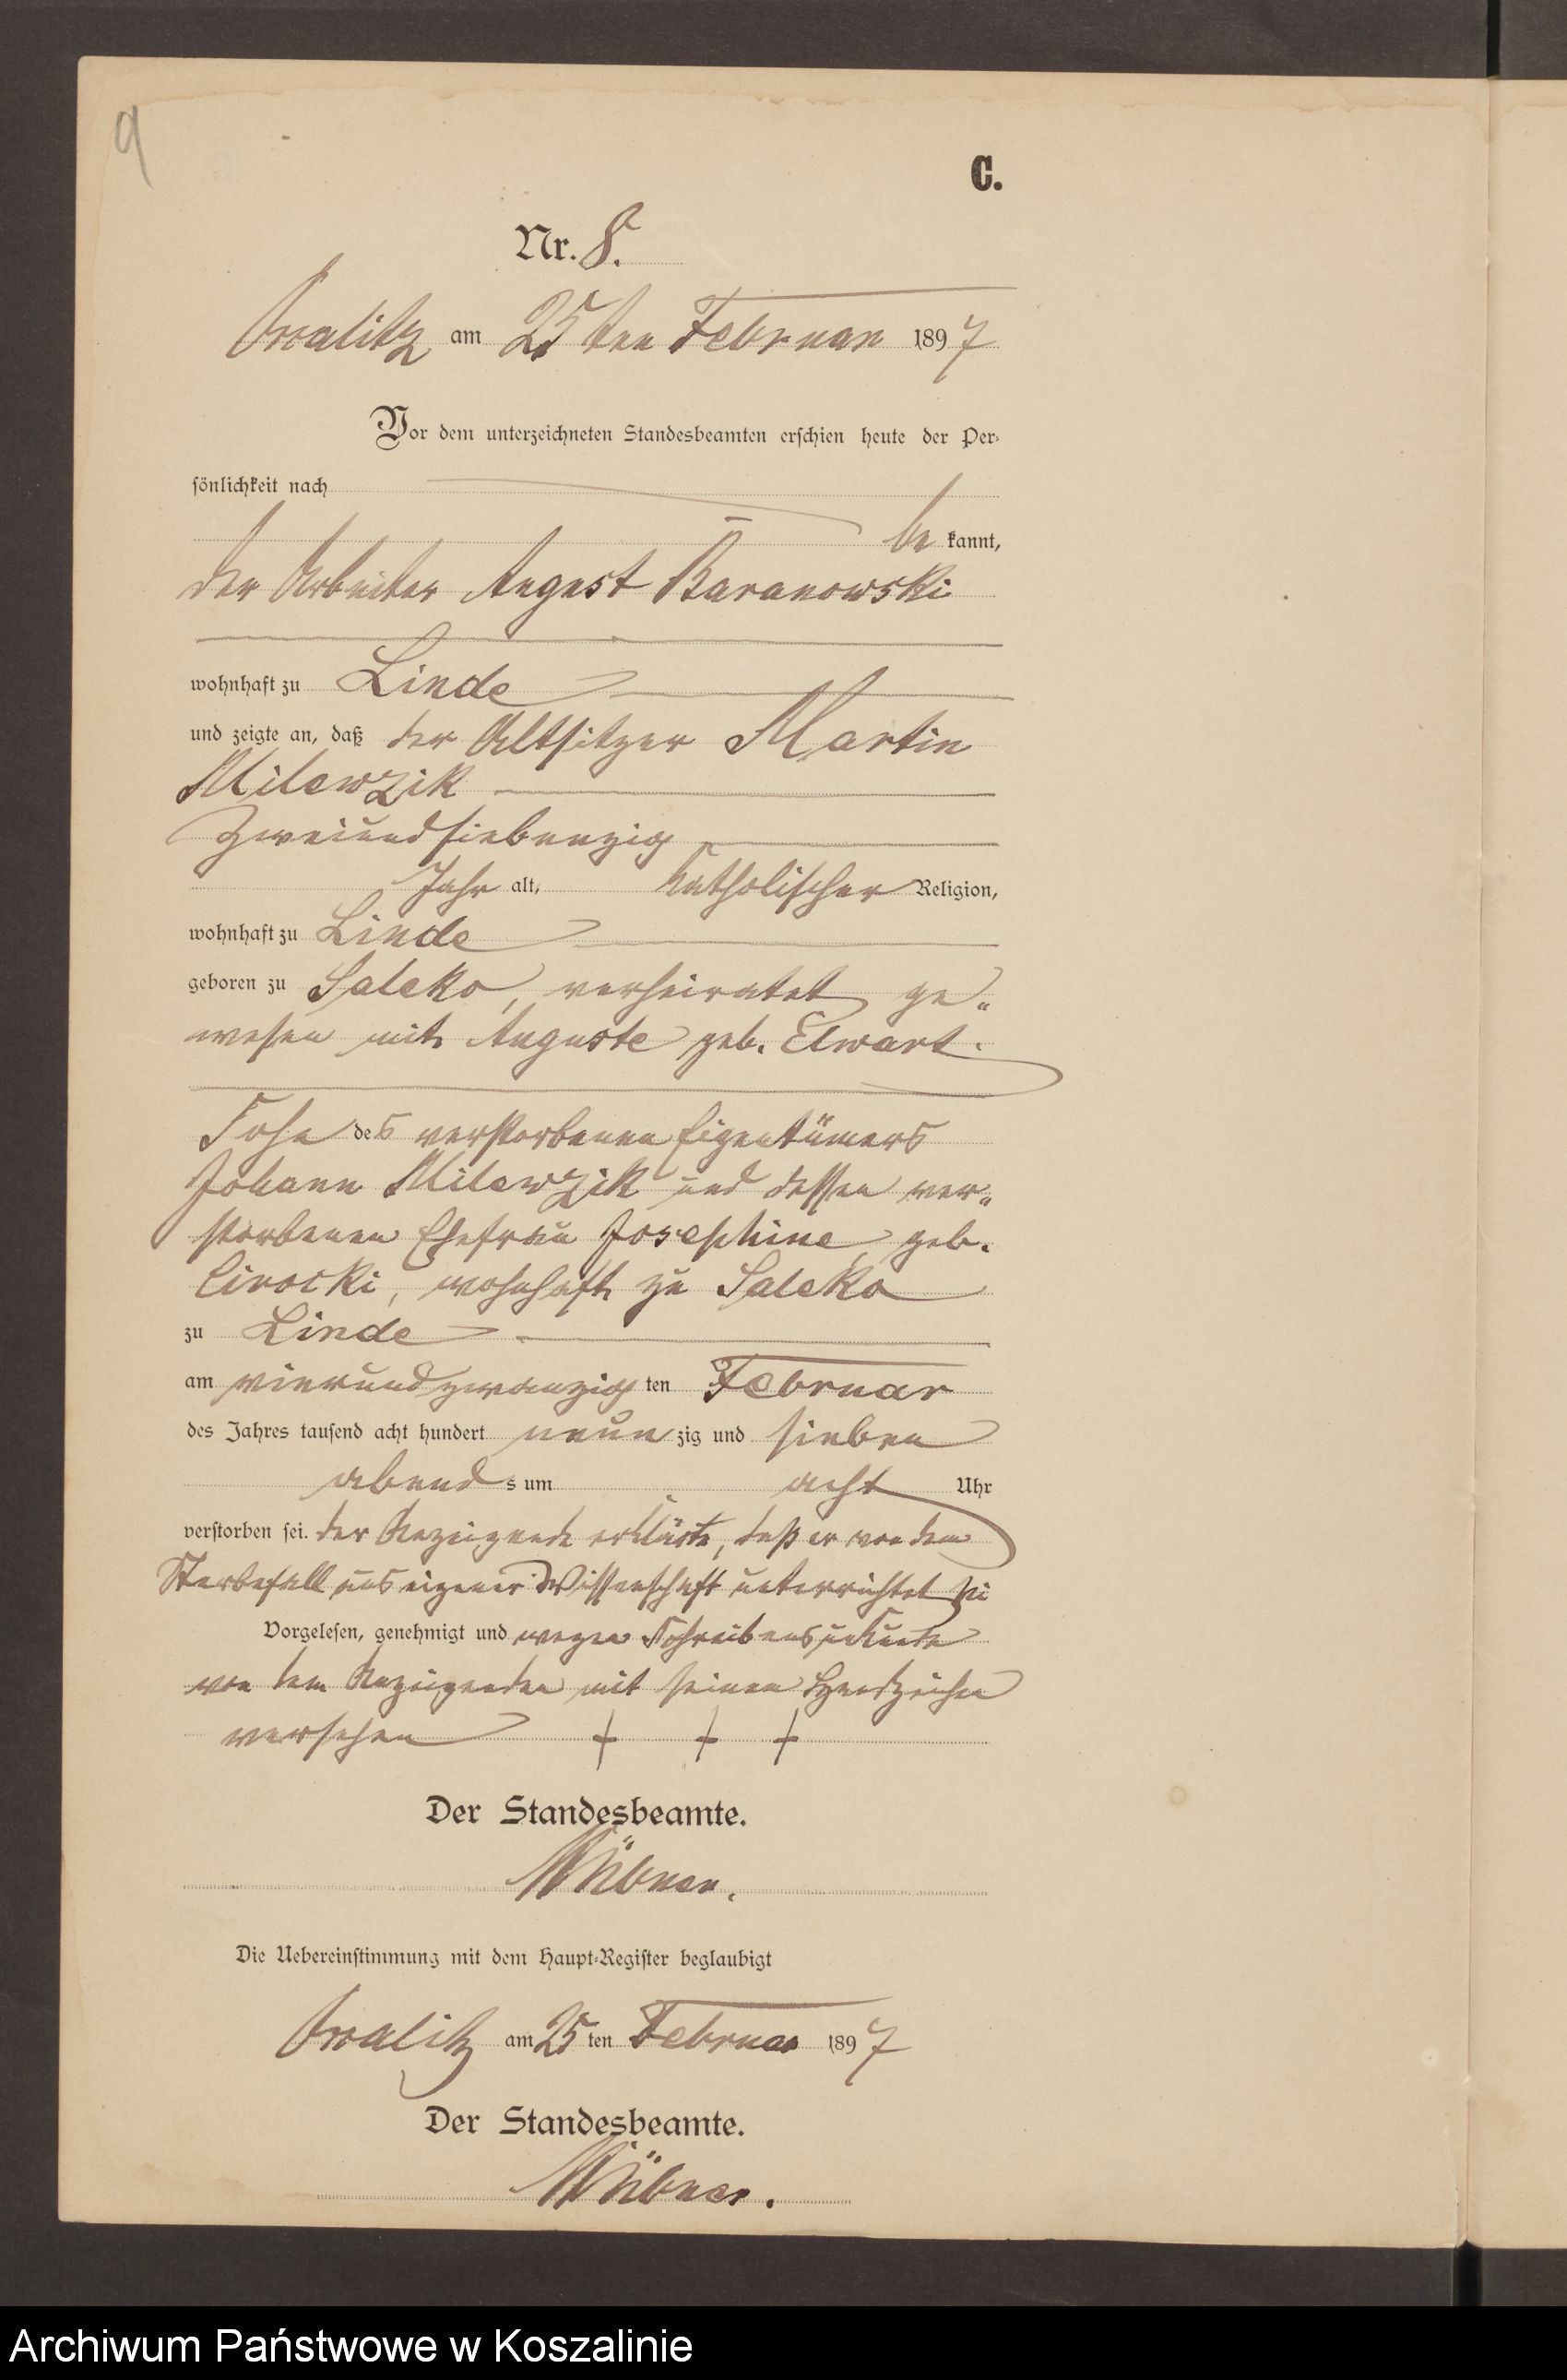 9
C.
Nr. 8.
am 25ten Februar 1897
Vor dem unterzeichneten Standesbeamten erschien heute der Per-
sönlichkeit nach
be kannt,
der Arbeiter August Baranowski
wohnhaft zu Linde
und zeigte an, daß der Altsitzer Martin
Milewzik
Zweiundsiebenzig
Jahr alt, katholischer Religion,
wohnhaft zu Linde
geboren zu Saleko, verheiratet ge-
wesen mit Auguste geb. Elwart.
Sohn des verstorbenen Eigentümers
Johann Milewzik und dessen ver-
storbenen Ehefrau Josephine, geb.
Cirocki, wohnhaft zu Saleko
zu Linde
am vierundzwanzig ten Februar
des Jahres tausend acht hundert neun zig und sieben
abend s um acht Uhr
verstorben sei. der Anzeigende erklärte, daß er von dem
Sterbefall aus eigener Wissenschaft unterrichtet sei
Vorgelesen, genehmigt und wegen Schreibensunkunde
von dem Anzeigenden mit seinen Handzeichen
versehen + + +
Der Standesbeamte.
Die Uebereinstimmung mit dem Haupt-Register beglaubigt
am 25 ten Februar 1897
Der Standesbeamte.
Archiwum Państwowe w Koszalinie